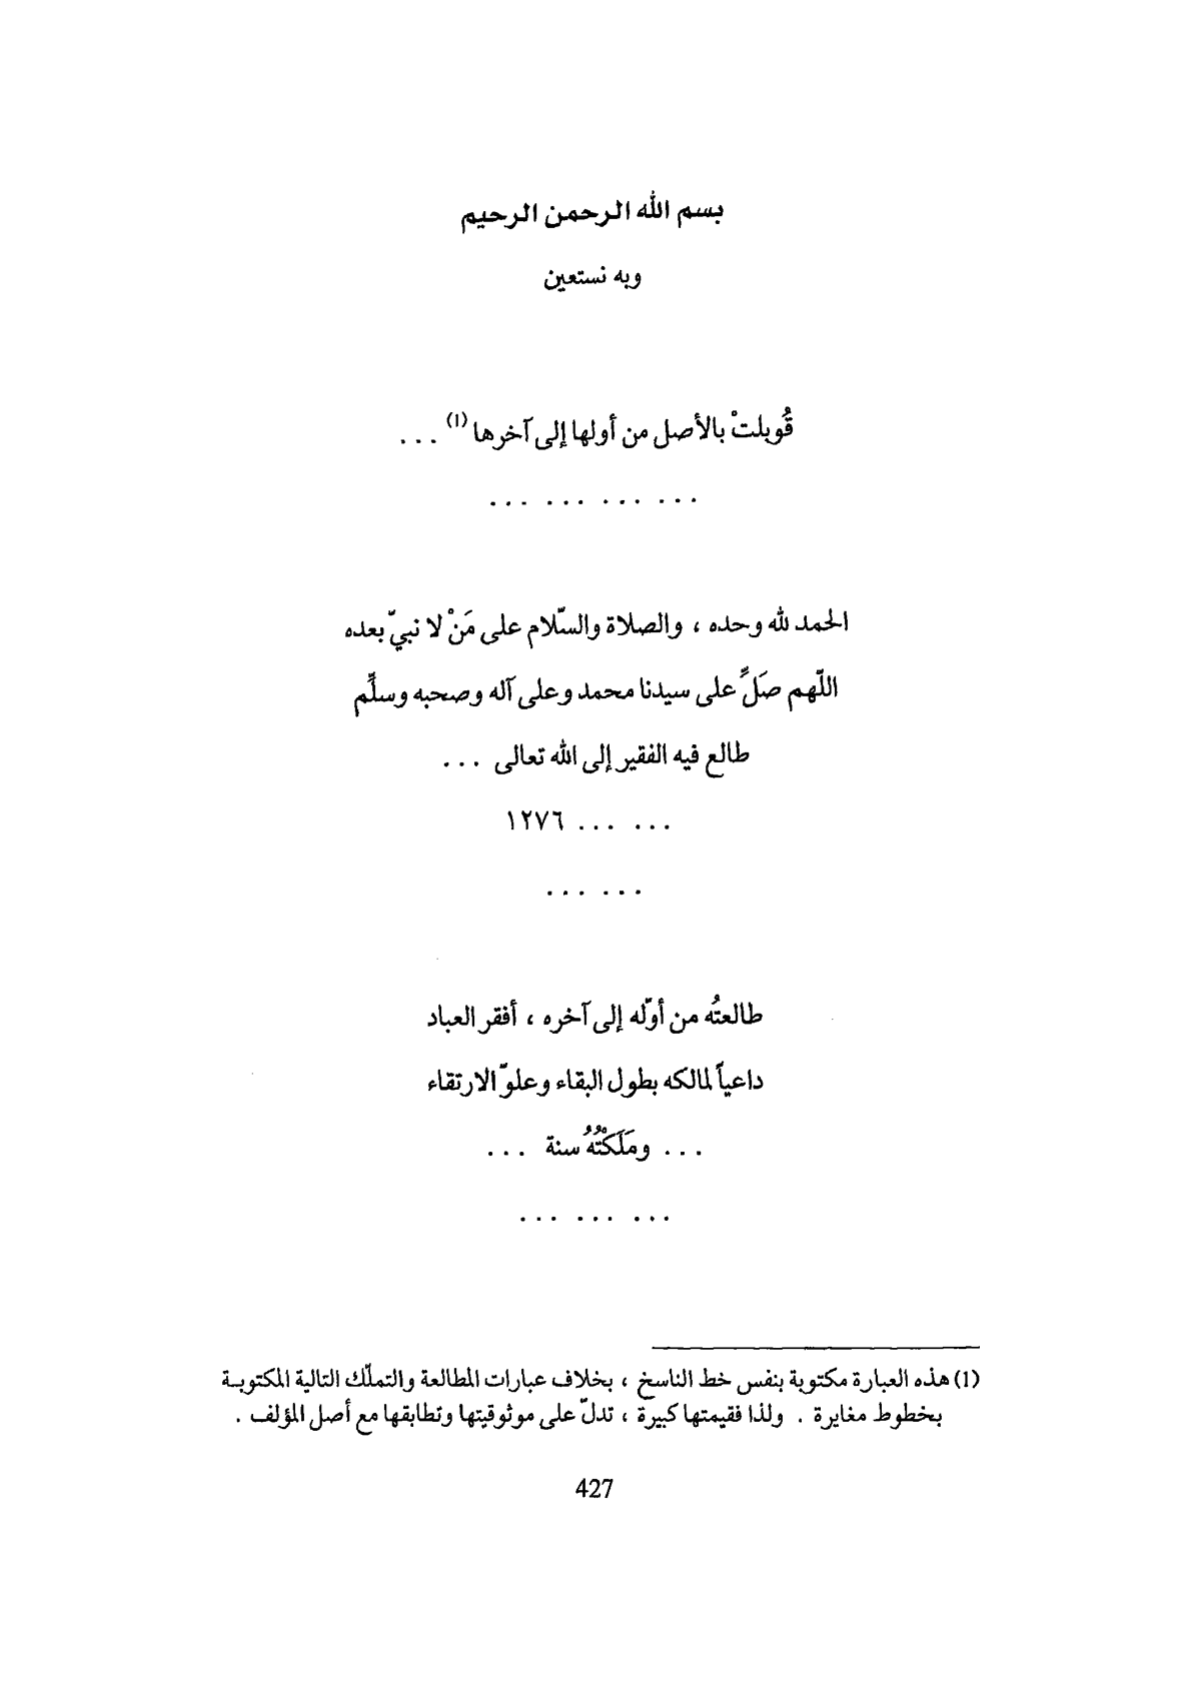 بسم الله الرحمن الرحيم
وبه نستعين
قُوبلتْ بالأصل من أولها إلى آخرها (١) ...
... ... ... ...
الحمد لله وحده ، والصلاة والسّلام على مَنْ لا نبيّ بعده
اللّهم صَلِّ على سيدنا محمد وعلى آله وصحبه وسلِّم
طالع فيه الفقير إلى الله تعالى ...
... ... ١٢٧٦
... ...
طالعتُه من أوّله إلى آخره ، أفقر العباد
داعياً لمالكه بطول البقاء وعلوّ الارتقاء
... ومَلَكْتُهُ سنة ...
... ... ...
(1) هذه العبارة مكتوبة بنفس خط الناسخ ، بخلاف عبارات المطالعة والتملّك التالية المكتوبة
بخطوط مغايرة . ولذا فقيمتها كبيرة ، تدلّ على موثوقيتها وتطابقها مع أصل المؤلف .
427